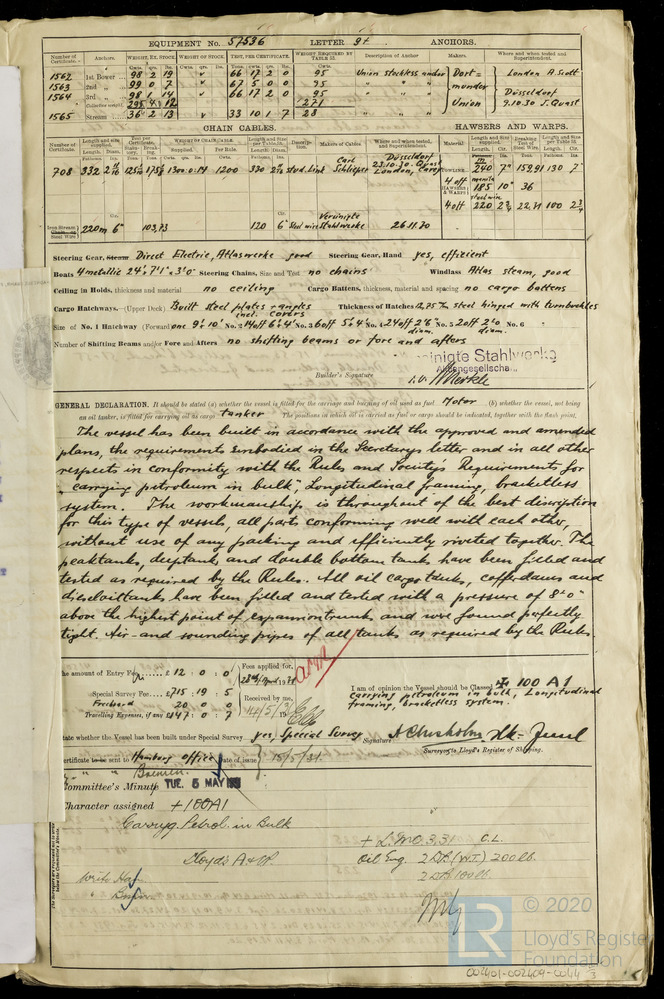 EQUIPMENT No. 57536 LETTER g+ ANCHORS.
Number of Certificate. Anchors. WEIGHT, EX. STOCK WEIGHT OF STOCK. TEST, PER CERTIFICATE. WEIGHT REQUIRED BY TABLE 22. Description of Anchor Makers. Where and when tested and Superintendent.
1562 1st Bower 98 2 19 66 17 2 0 95 Union stockless anchor Dort= London A. Scott
1563 2nd „ 99 0 7 67 5 0 0 95 " " " munder
1564 3rd „ 98 1 14 66 17 2 0 95 " " " Düsseldorf
Collective weight 295 4 12 271 Union 9.10.30 J. Quast
1565 Stream 36 2 13 33 10 1 7 28
CHAIN CABLES. HAWSERS AND WARPS.
708 332 1300.0.14 1200 330 stud link Carl Schlieper Düsseldorf 23.10.30 Quast London, Carey
TOWLINE 240 7" 159,91 130 7"
4 off manila 185 10" 36
HAWSERS & WARPS
4 off steel wire 220 2¾ 22.71 100 2¾
Iron Stream Chain or Steel Wire 220m 6" 103,73 120 6" Steel wire Vereinigte Stahlwerke 26.11.30
Steering Gear, Steam Direct Electric, Atlaswerke good Steering Gear, Hand yes, efficient
Boats 4 metallic 24'×7'1"×3'0" Steering Chains, Size and Test no chains Windlass Atlas steam, good
Ceiling in Holds, thickness and material no ceiling Cargo Battens, thickness, material and spacing no cargo battens
Cargo Hatchways.—(Upper Deck) Built steel plates & angles incl. covers Thickness of Hatches 12,75 m/m steel hinged with turnbuckles
Size of No. 1 Hatchway (Forward) one 9'0" 10' No. 2 14 off 6'×4' No. 3 6 off 5'×4' No. 4 24 off 2'6" diam. No. 5 2 off 2'0" diam. No. 6
Number of Shifting Beams and/or Fore and Afters no shifting beams or fore and afters
inigte Stahlwerke
Aktiengesellscha
Builder's Signature i.V. Merkle
GENERAL DECLARATION. It should be stated (a) whether the vessel is fitted for the carriage and burning of oil used as fuel Motor (b) whether the vessel, not being
an oil tanker, is fitted for carrying oil as cargo tanker The positions in which oil is carried as fuel or cargo should be indicated, together with the flash point.
The vessel has been built in accordance with the approved and amended
plans, the requirements embodied in the Secretarys letter and in all other
respects in conformity with the Rules and Society's Requirements for
"carrying petroleum in bulk", Longitudinal framing, bracketless
system. The workmanship is throughout of the best discription
for this type of vessels, all parts conforming well with each other,
without use of any packing and efficiently riveted together. The
peaktanks, deeptanks and double bottom tanks have been filled and
tested as required by the Rules. All oil cargo tanks, cofferdams and
dieseloiltanks have been filled and tested with a pressure of 8'-0"
above the highest point of expansiontrunks and were found perfectly
tight. Air- and sounding pipes of all tanks as required by the Rules.
he amount of Entry Fee £ 12 : 0 : 0 Fees applied for,
28th April 1931
Special Survey Fee £715 : 19 : 5
Freeboard 20 : 0 : 0 Received by me,
Travelling Expenses, if any £147 : 0 : 7 14/5/31
I am of opinion the Vessel should be Classed ✠ 100 A1
carrying petroleum in bulk, Longitudinal
framing, bracketless system.
tate whether the Vessel has been built under Special Survey yes, Special Survey Signature A Chisholm
Surveyor to Lloyd's Register of Shipping.
ertificate to be sent to Hamburg office Date of issue 15/5/31.
" " Bremen.
Committee's Minute TUE. 5 MAY 1931
Character assigned +100A1
Carryg. Petrol. in Bulk
+ L.M.C 3,31 C.L.
Lloyd's A & C.P. Oil Eng. 2 D.B. (W.T.) 200 lb.
2 D.B. 100 lb.
Write Ham
" Bremen
LR © 2020
Lloyd's Register
Foundation
002401-002409-0044 1/3